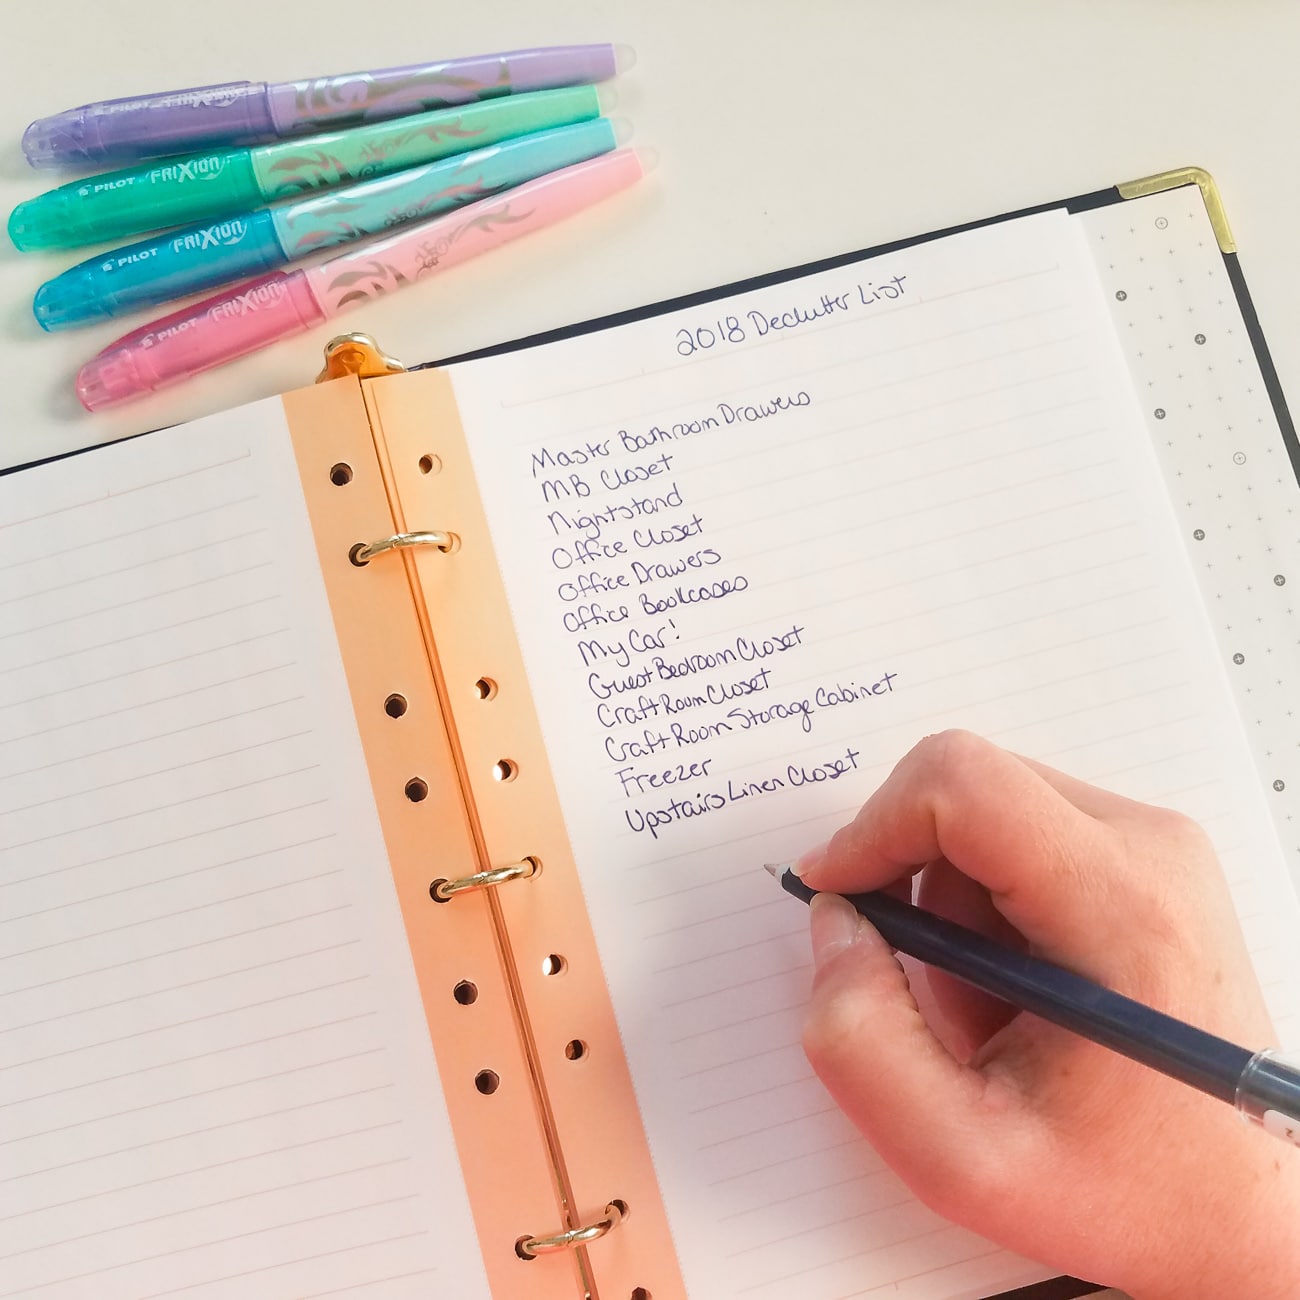 PILOT FRIXION
PILOT FRIXION
PILOT FRIXION
PILOT FRIXION
2018 Declutter List
Master Bathroom Drawers
MB Closet
Nightstand
Office Closet
Office Drawers
Office Bookcases
My Car!
Guest Bedroom Closet
Craft Room Closet
Craft Room Storage Cabinet
Freezer
Upstairs Linen Closet